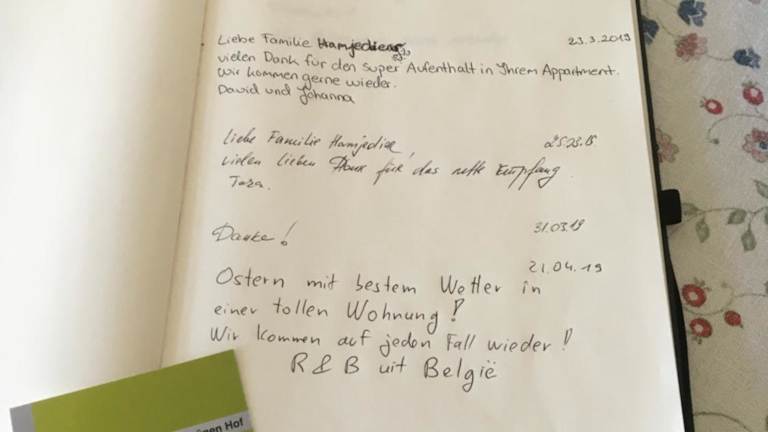 Liebe Familie Hamjediers, 23.3.2019
vielen Dank für den super Aufenthalt in Ihrem Appartment.
Wir kommen gerne wieder.
David und Johanna
Liebe Familie Hamjedier,
vielen lieben Dank für das nette Empfang.
Danke! 31.03.19
21.04.19
Ostern mit bestem Wetter in
einer tollen Wohnung!
Wir kommen auf jeden Fall wieder!
R & B uit België
Hof